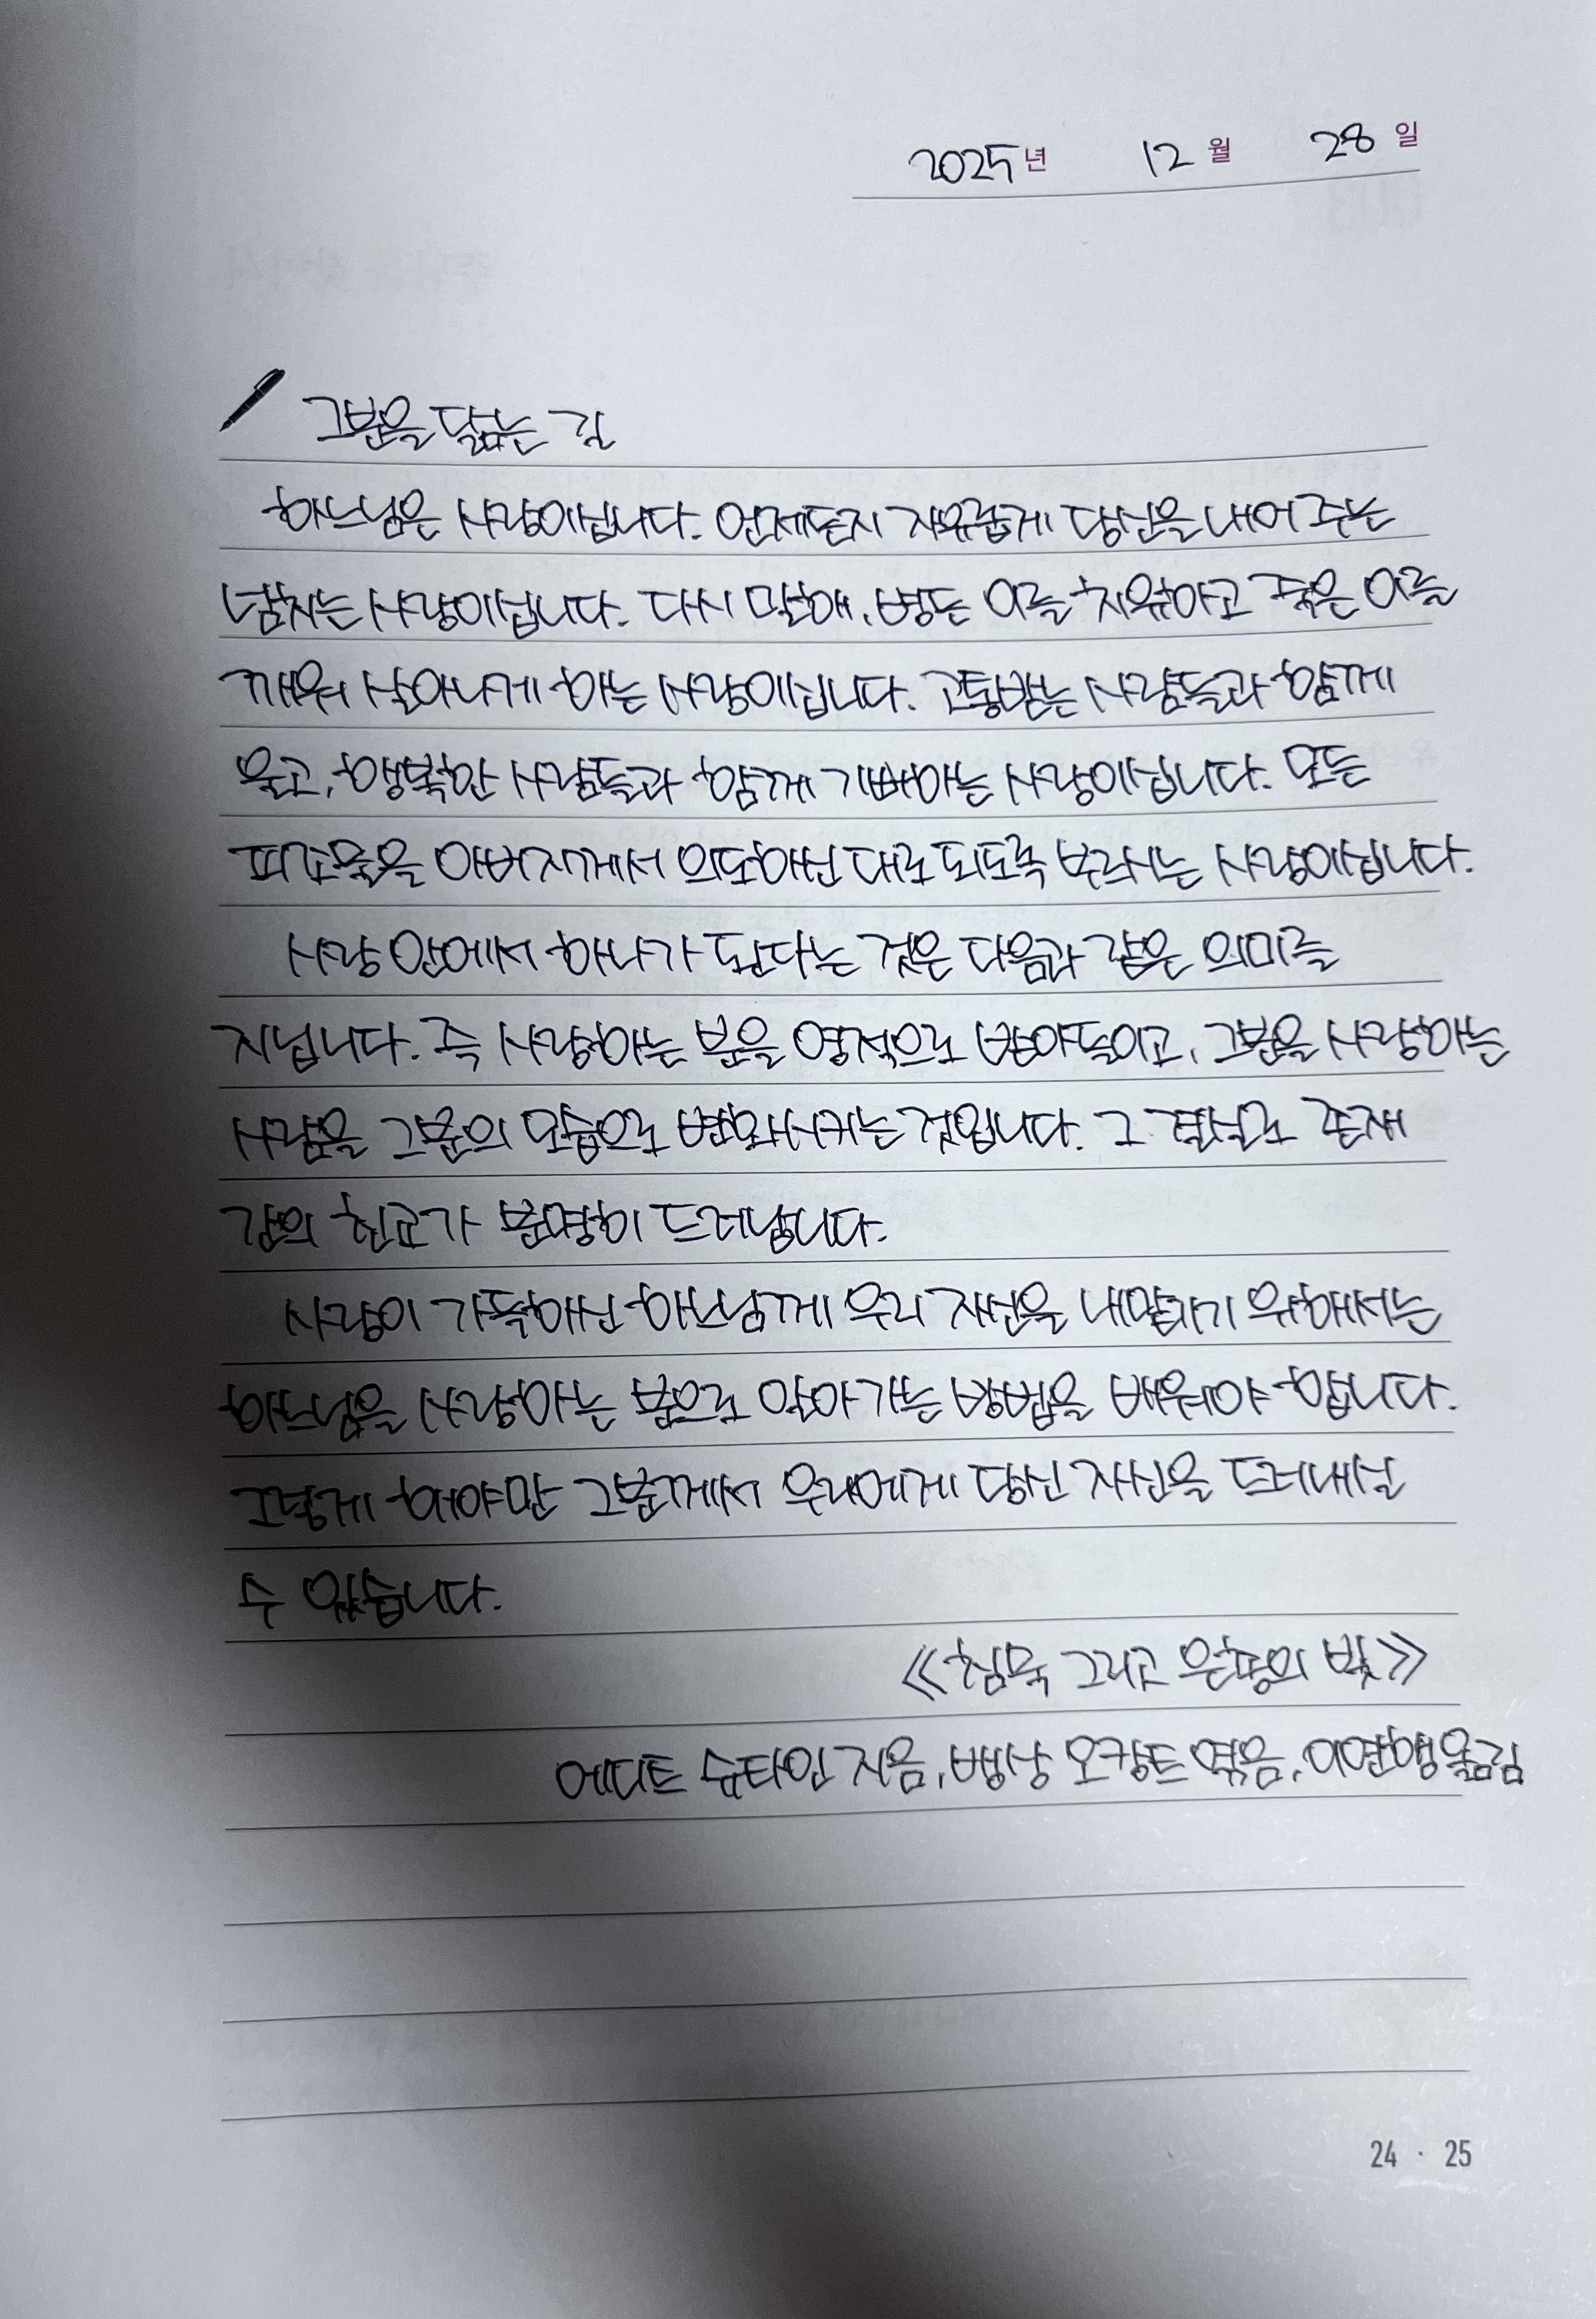 2025년 12월 28일
그분을 닮는 길
하느님은 사랑이십니다. 언제든지 자유롭게 당신을 내어 주는
넘치는 사랑이십니다. 다시 말해, 병든 이를 치유하고 죽은 이를
깨워 살아나게 하는 사랑이십니다. 고통받는 사람들과 함께
울고, 행복한 사람들과 함께 기뻐하는 사랑이십니다. 모든
피조물을 아버지께서 의도하신 대로 되도록 부르시는 사랑이십니다.
사랑 안에서 하나가 된다는 것은 다음과 같은 의미를
지닙니다. 즉 사랑하는 분을 영적으로 받아들이고, 그분을 사랑하는
사람을 그분의 모습으로 변화시키는 것입니다. 그 결실로 존재
간의 친교가 분명히 드러납니다.
사랑이 가득하신 하느님께 우리 자신을 내맡기기 위해서는
하느님을 사랑하는 분으로 알아 가는 방법을 배워야 합니다.
그렇게 해야만 그분께서 우리에게 당신 자신을 드러내실
수 있습니다.
《침묵 그리고 은총의 빛》
에디트 슈타인 지음, 뱅상 오캉트 엮음, 이연행 옮김
24 · 25